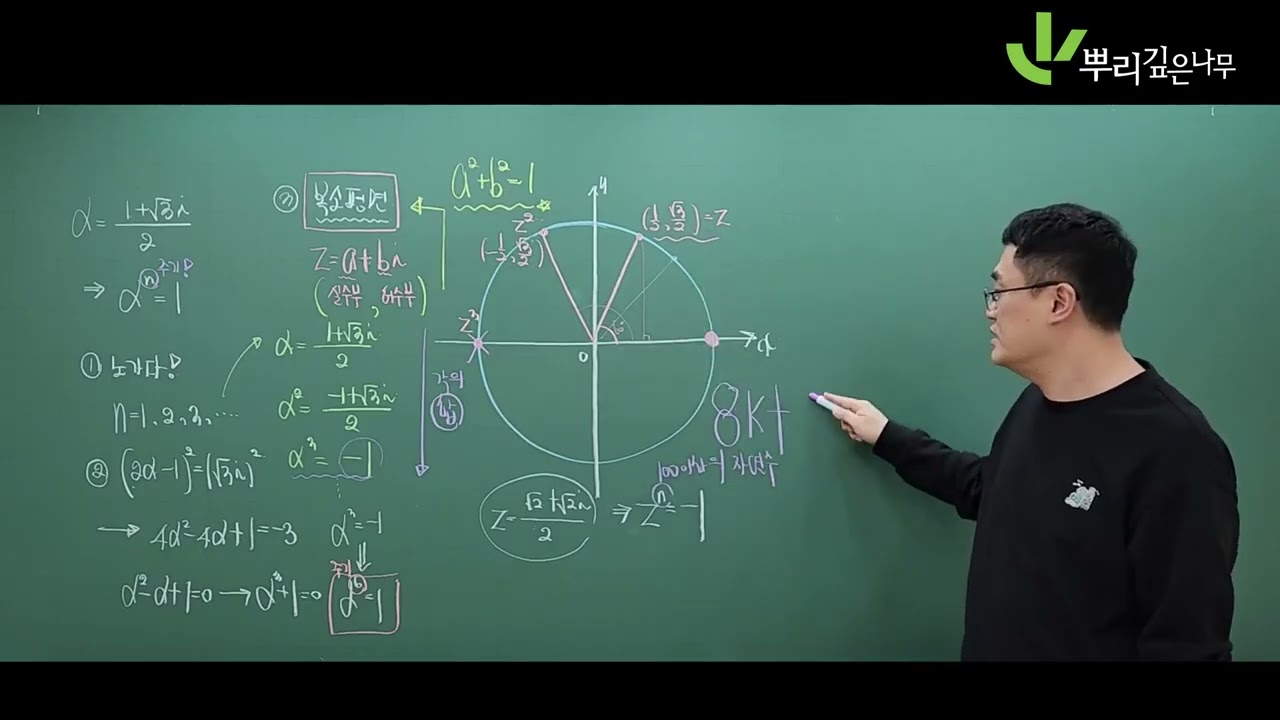 뿌리깊은나무
α = (1+√3i)/2
⇒ αⁿ = 1
주기!
① 노가다!
n=1, 2, 3, ····
② (2α-1)² = (√3i)²
→ 4α²-4α+1=-3
α²-α+1=0 → α³+1=0
③ 복소평면
z=a+bi
(실수부, 허수부)
α = (1+√3i)/2
α² = (-1+√3i)/2
α³ = -1
α³=-1
⇓
주기
α⁶=1
a²+b²=1
각의
합
y
x
O
(1/2, √3/2)=z
z²
(-1/2, √3/2)
z³
z = (√2+√2i)/2 ⇒ zⁿ=-1
8k+
100이하의 자연수